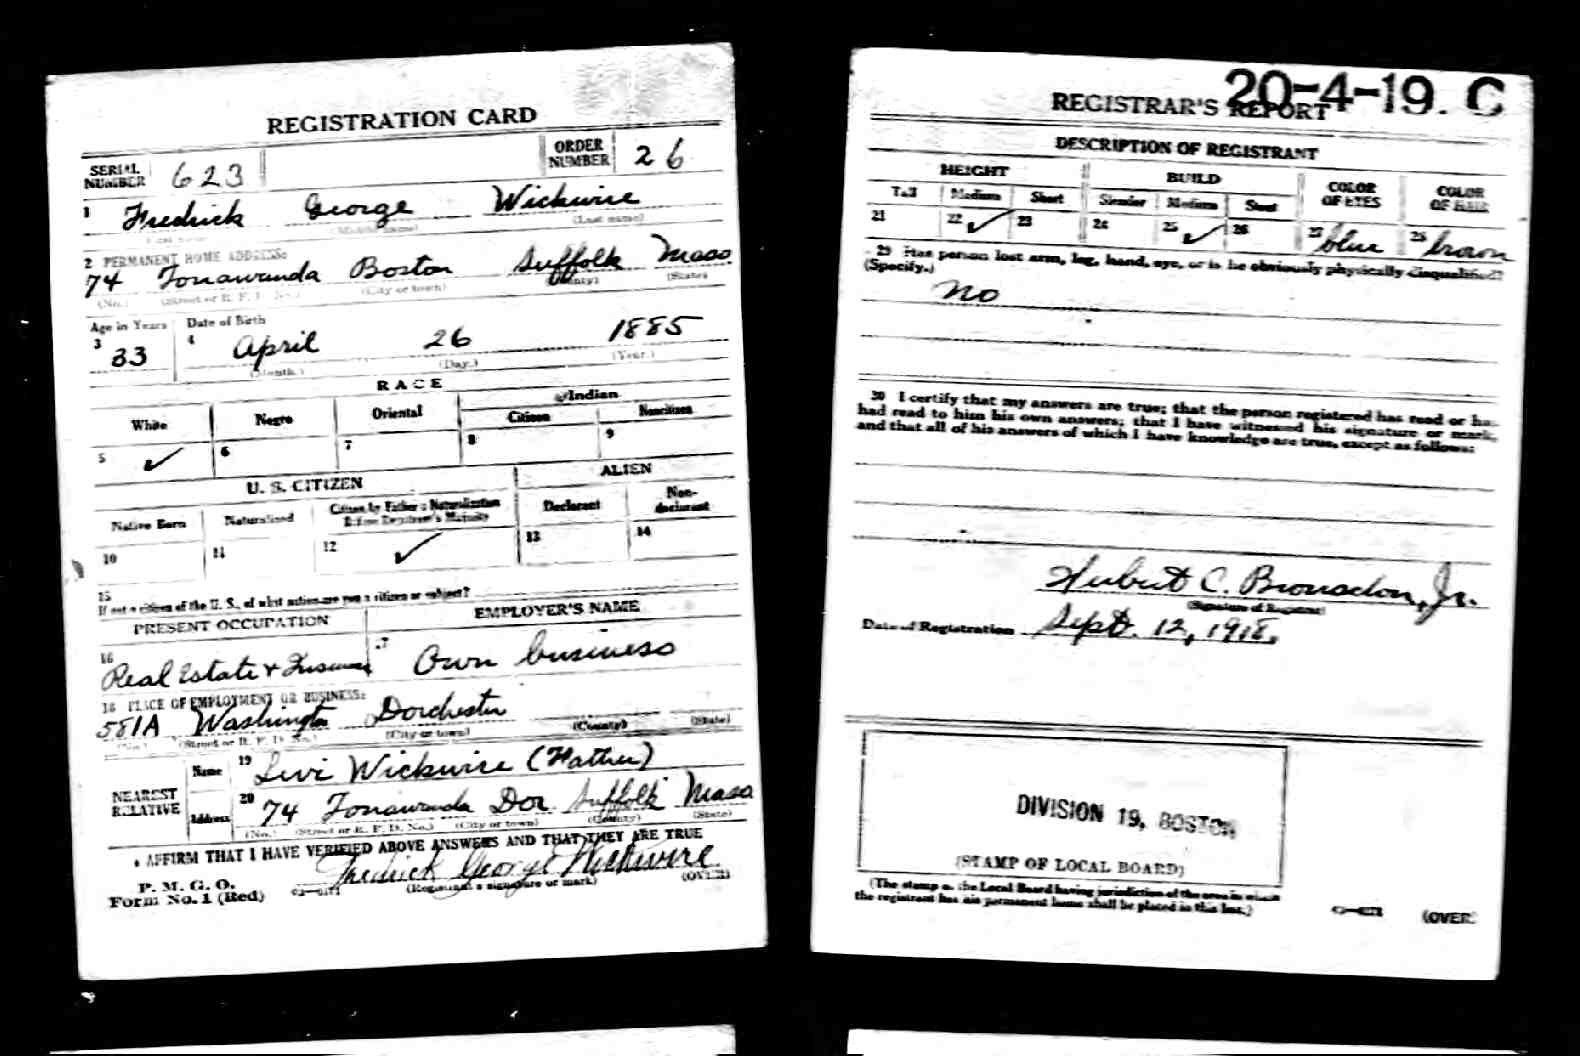 REGISTRATION CARD
SERIAL NUMBER 623 ORDER NUMBER 26
1 Fredrick George Wickwire
(Middle name) (Last name)
2 PERMANENT HOME ADDRESS:
74 Tonawanda Boston Suffolk Mass
(No.) (Street or R. F. D. No.) (City or town) (County) (State)
Age in Years Date of Birth
3 33 4 April 26 1885
(Month.) (Day.) (Year.)
RACE
White Negro Oriental Indian
Citizen Noncitizen
5 ✓ 6 7 8 9
U. S. CITIZEN ALIEN
Native Born Naturalized Citizen by Father's Naturalization Before Registrant's Majority Declarant Non-declarant
10 11 12 ✓ 13 14
15
If not a citizen of the U. S., of what nation are you a citizen or subject?
PRESENT OCCUPATION EMPLOYER'S NAME
16 Real Estate & Insurance 17 Own business
18 PLACE OF EMPLOYMENT OR BUSINESS:
581A Washington Dorchester
(No.) (Street or R. F. D. No.) (City or town) (County) (State)
NEAREST RELATIVE
Name 19 Levi Wickwire (Father)
Address 20 74 Tonawanda Dor Suffolk Mass
(No.) (Street or R. F. D. No.) (City or town) (County) (State)
I AFFIRM THAT I HAVE VERIFIED ABOVE ANSWERS AND THAT THEY ARE TRUE
P. M. G. O.
Form No. 1 (Red) Fredrick George Wickwire
(Registrant's signature or mark) (OVER)
20-4-19. C
REGISTRAR'S REPORT
DESCRIPTION OF REGISTRANT
HEIGHT BUILD COLOR OF EYES COLOR OF HAIR
Tall Medium Short Slender Medium Stout
21 22 ✓ 23 24 25 ✓ 26 27 blue 28 brown
29 Has person lost arm, leg, hand, eye, or is he obviously physically disqualified?
(Specify.)
no
30 I certify that my answers are true; that the person registered has read or has
had read to him his own answers; that I have witnessed his signature or mark,
and that all of his answers of which I have knowledge are true, except as follows:
Hubert C. Bronsdon, Jr.
(Signature of Registrar)
Date of Registration Sept. 12, 1918.
DIVISION 19, BOSTON
(STAMP OF LOCAL BOARD)
(The stamp of the Local Board having jurisdiction of the area in which
the registrant has his permanent home shall be placed in this box.)
(OVER)